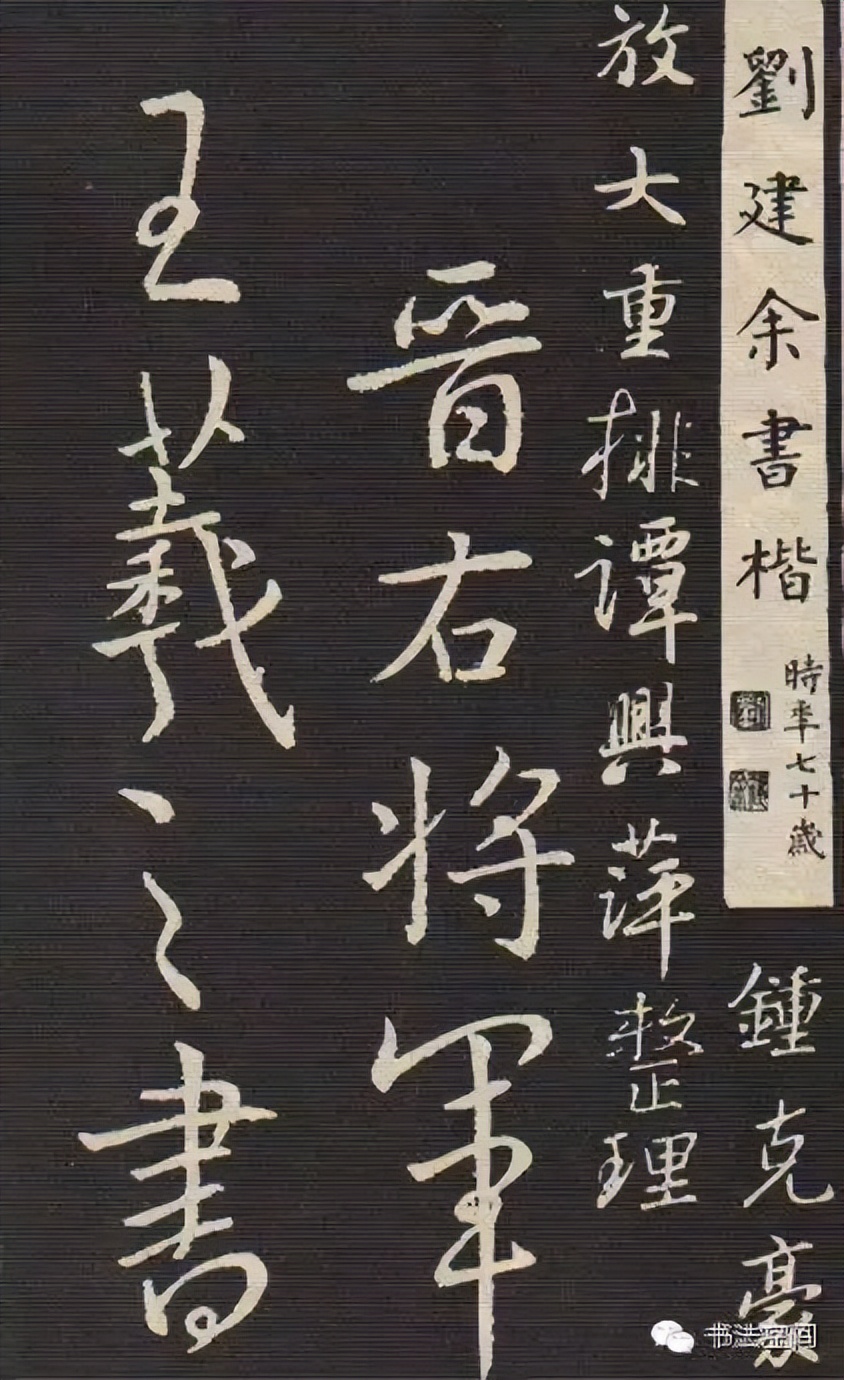 劉建余書楷
時年七十歲
鍾克豪
放大重排譚興萍整理
晉右将軍
王羲之書
书法空间